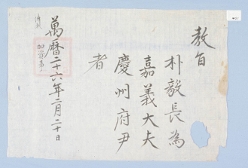 敎旨
朴毅長爲
嘉義大夫
慶州府尹
者
萬曆二十六年二月二十日